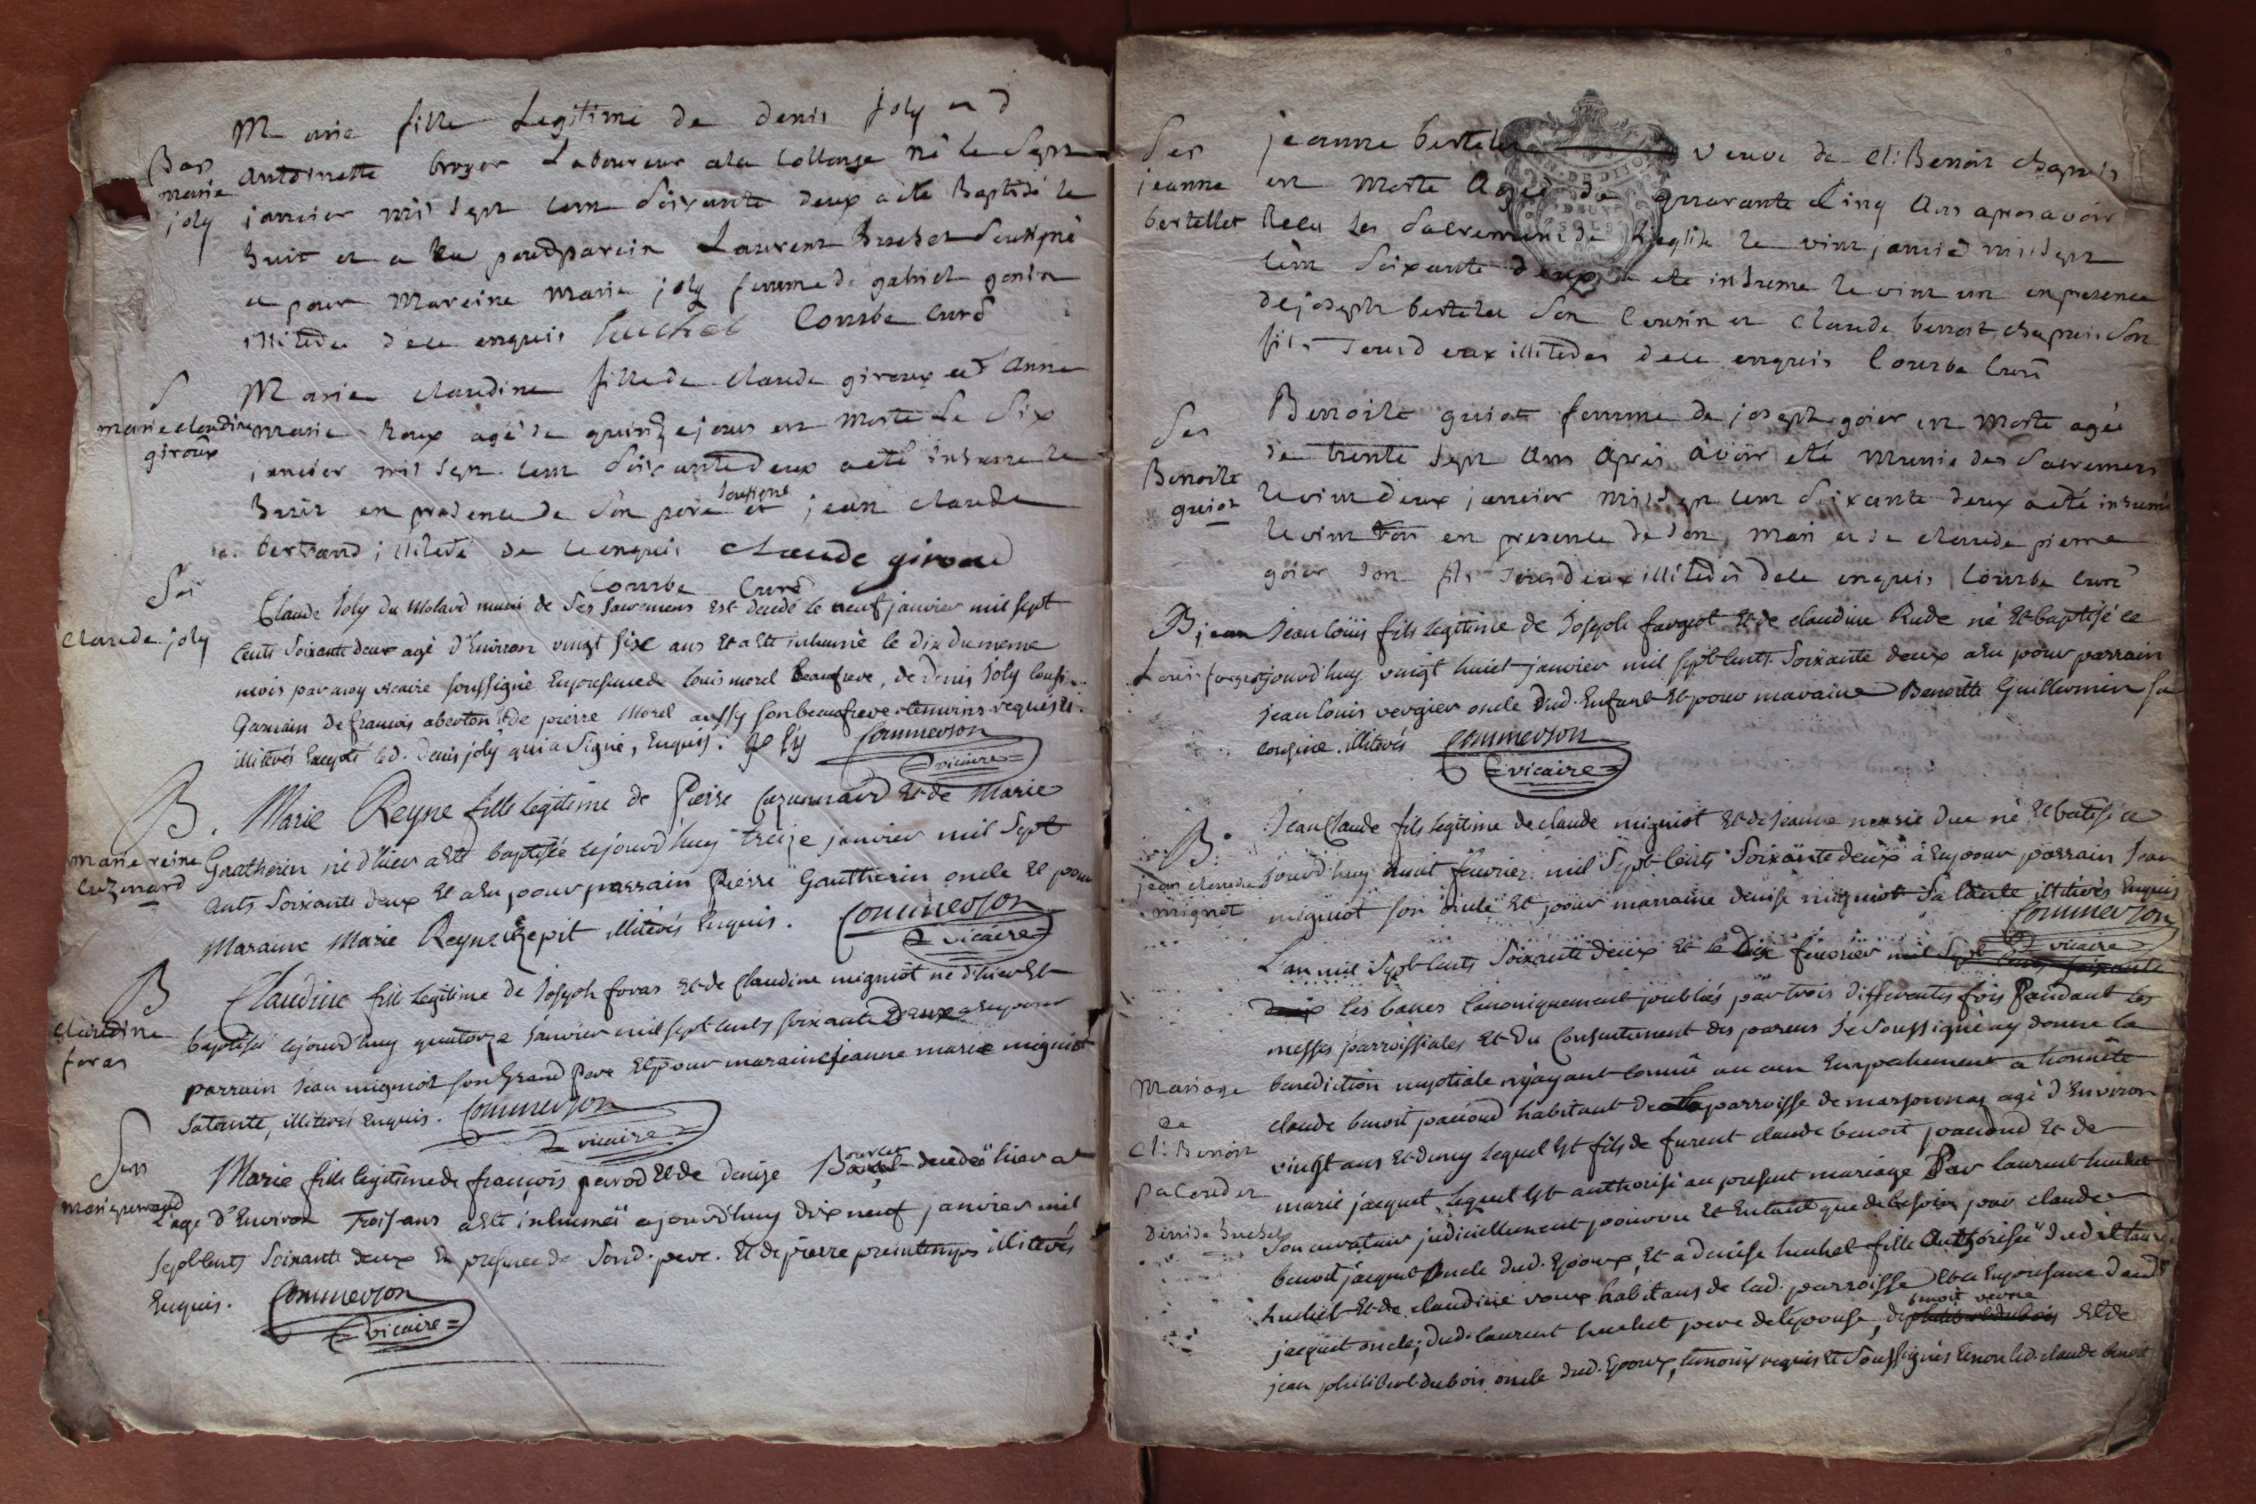 Bap
marie
joly
Marie fille Legitime de denis joly et d
antoinette broyer Laboureur ala Collonge né le Sept
janvier mil Sept Cent Soixante deux a eté Baptisé le
huit et a eu pour parein Laurent huchet Soussigné
et pour Mareine marie joly femme de gabriel gonin
illiterée de ce enquis huchet Courbe Curé
S
marie claudine
giroux
Marie claudine fille de claude giroux et d'anne
marie Roux agé de quinze jours est morte le Six
janvier mil Sept Cent Soixante deux a eté inhumé le
huit en presence de Son pere soussigné et jean claude
bertrand illiteré de ce enquis claude giroud
Courbe Curé
Ser
claude joly
Claude Joly du Molard muni de Ses Sacremens est decedé le neuf janvier mil sept
Cents Soixante deux agé d'Environ vingt six ans et a eté inhumé le dix du meme
mois par moy vicaire soussigné En presence de louis morel beaufrere, de denis Joly Cousin
Germain de francois aberton et de pierre Morel aussy son beaufrere temoins requis
illiterés Excepté led. denis joly qui a signé, Enquis. joly Commerson
vicaire
B.
marie reine
cuzinard
Marie Reyne fille legitime de Pierre Cuzennard et de Marie
Gautherin né d'hier a eté baptisée cejourd'huy treize janvier mil Sept
Cents Soixante deux et a eu pour parrain Pierre Gautherin oncle et pour
Maraine Marie Reyne Repit illiterés Enquis. Commerson
vicaire
B
claudine
foras
Claudine fille legitime de Joseph foras et de Claudine migniot né d'hier et
baptisée cejourd'huy quatorze Janvier mil sept cents soixante Deux a eu pour
parrain Jean migniot son Grand Pere et pour maraine jeanne marie migniot
Satante, illiterés Enquis. Commerson
vicaire
Sep
marie perraud
Marie fille legitime de françois perrod et de denize decedée hier a
L'age d'Environ Trois ans a eté inhumée cejourd'huy dix neuf janvier mil
sept cents Soixante deux En presence de Sond. pere. Et de pierre preintemps illiterés
Enquis. Commerson
vicaire
Ser
jeanne
bertellet
jeanne bertelet veuve de cl: Benoit chapuis
est Morte Agée de quarante Cinq Ans apres avoir
Recu les Sacremens de l'eglise le vint janvier mil Sept
Cent Soixante deux a eté inhumé le vint un en presence
de joseph bertelet Son Cousin et claude benoit chapuis Son
fils Tous deux illiterés de ce enquis Courbe Curé
Ser
Benoite
guiot
Benoite guiot femme de joseph goier est Morte agée
de trente Sept Ans Apres avoir eté munie des Sacremens
le vint deux janvier Mil Sept Cent Soixante deux a eté inhumé
le vint trois en presence de Son Mari et de claude pierre
goier Son fils Tous deux illiterés de ce enquis Courbe Curé
B jean
Louis fargeot
Jean loüis fils legitime de Joseph fargeot et de claudine Rude né et baptisé ce
jourd'huy vingt huict janvier mil sept cents Soixante deux a eu pour parrain
Jean louis vergier oncle dud. Enfant et pour maraine Benoitte Guillermin sa
cousine. illiterés Commerson
vicaire
B.
jean claude
mignot
Jean Claude fils legitime de claude migniot et de Jeanne marie Duc né et batisé ce
jourd'huy huit fevrier mil Sept Cents Soixante deux a eu pour parrain Jean
migniot son oncle et pour marraine denise migniot Sa tante illiterés Enquis
Commerson
vicaire
Mariage
de
Cl: Benoit
pacoud et
denise huchet
L'an mil Sept Cents Soixante deux et le Dix fevrier mil Sept Cents Soixante
deux les bancs Canoniquement publiés par trois differentes fois Pendant les
messes parroissiales et du Consentement des parens Je Soussigné ay donné la
benediction nuptiale n'y ayant connu aucun Empechement a honnête
claude benoit pacoud habitant de la parroisse de marsonnas agé d'Environ
vingt ans et demy lequel est fils de furent claude benoit pacoud et de
marie jacquet lequel est authorisé au present mariage Par laurent huchet
Son curateur judiciellement pourvu et Entant que de besoin par claude
benoit jacquet oncle dud. Epoux, et a denise huchet fille authorisée dudit laurent
huchet et de claudine roux habitans de lad. parroisse et ce En presence dud
jacquet oncle; dud. laurent huchet pere de lepouse, de philibert dubois benoit verne et de
jean philibert dubois oncle dud. Epoux, temoins requis et Soussignés Sinon led. claude benoit